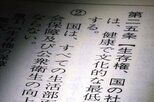 第二五条【生存権、国の社
は、健康で文化的な最低
する。
② 国は、すべての生活部
会保障及び公衆衛生の向上